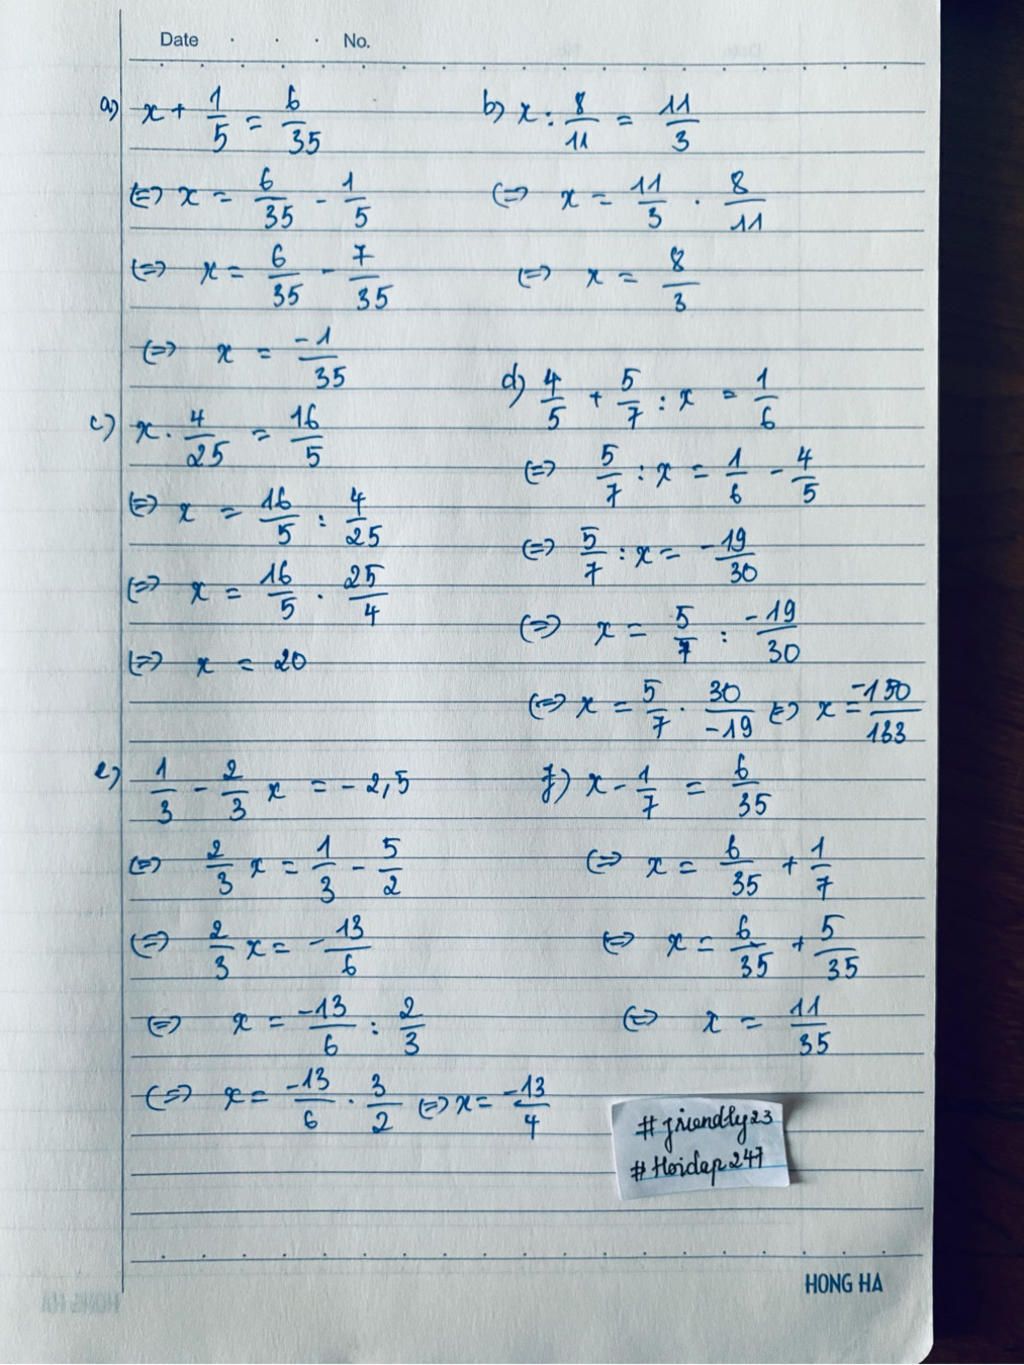 Date . . . No.
a) x + 1/5 = 6/35
<=> x = 6/35 - 1/5
<=> x = 6/35 - 7/35
<=> x = -1/35
b) x : 8/11 = 11/3
<=> x = 11/3 . 8/11
<=> x = 8/3
c) x . 4/25 = 16/5
<=> x = 16/5 : 4/25
<=> x = 16/5 . 25/4
<=> x = 20
d) 4/5 + 5/7 : x = 1/6
<=> 5/7 : x = 1/6 - 4/5
<=> 5/7 : x = -19/30
<=> x = 5/7 : -19/30
<=> x = 5/7 . 30/-19 <=> x = -150/133
e) 1/3 - 2/3 x = -2,5
<=> 2/3 x = 1/3 - 5/2
<=> 2/3 x = -13/6
<=> x = -13/6 : 2/3
<=> x = -13/6 . 3/2 <=> x = -13/4
f) x - 1/7 = 6/35
<=> x = 6/35 + 1/7
<=> x = 6/35 + 5/35
<=> x = 11/35
#friendly23
#Hoidap247
HONG HA